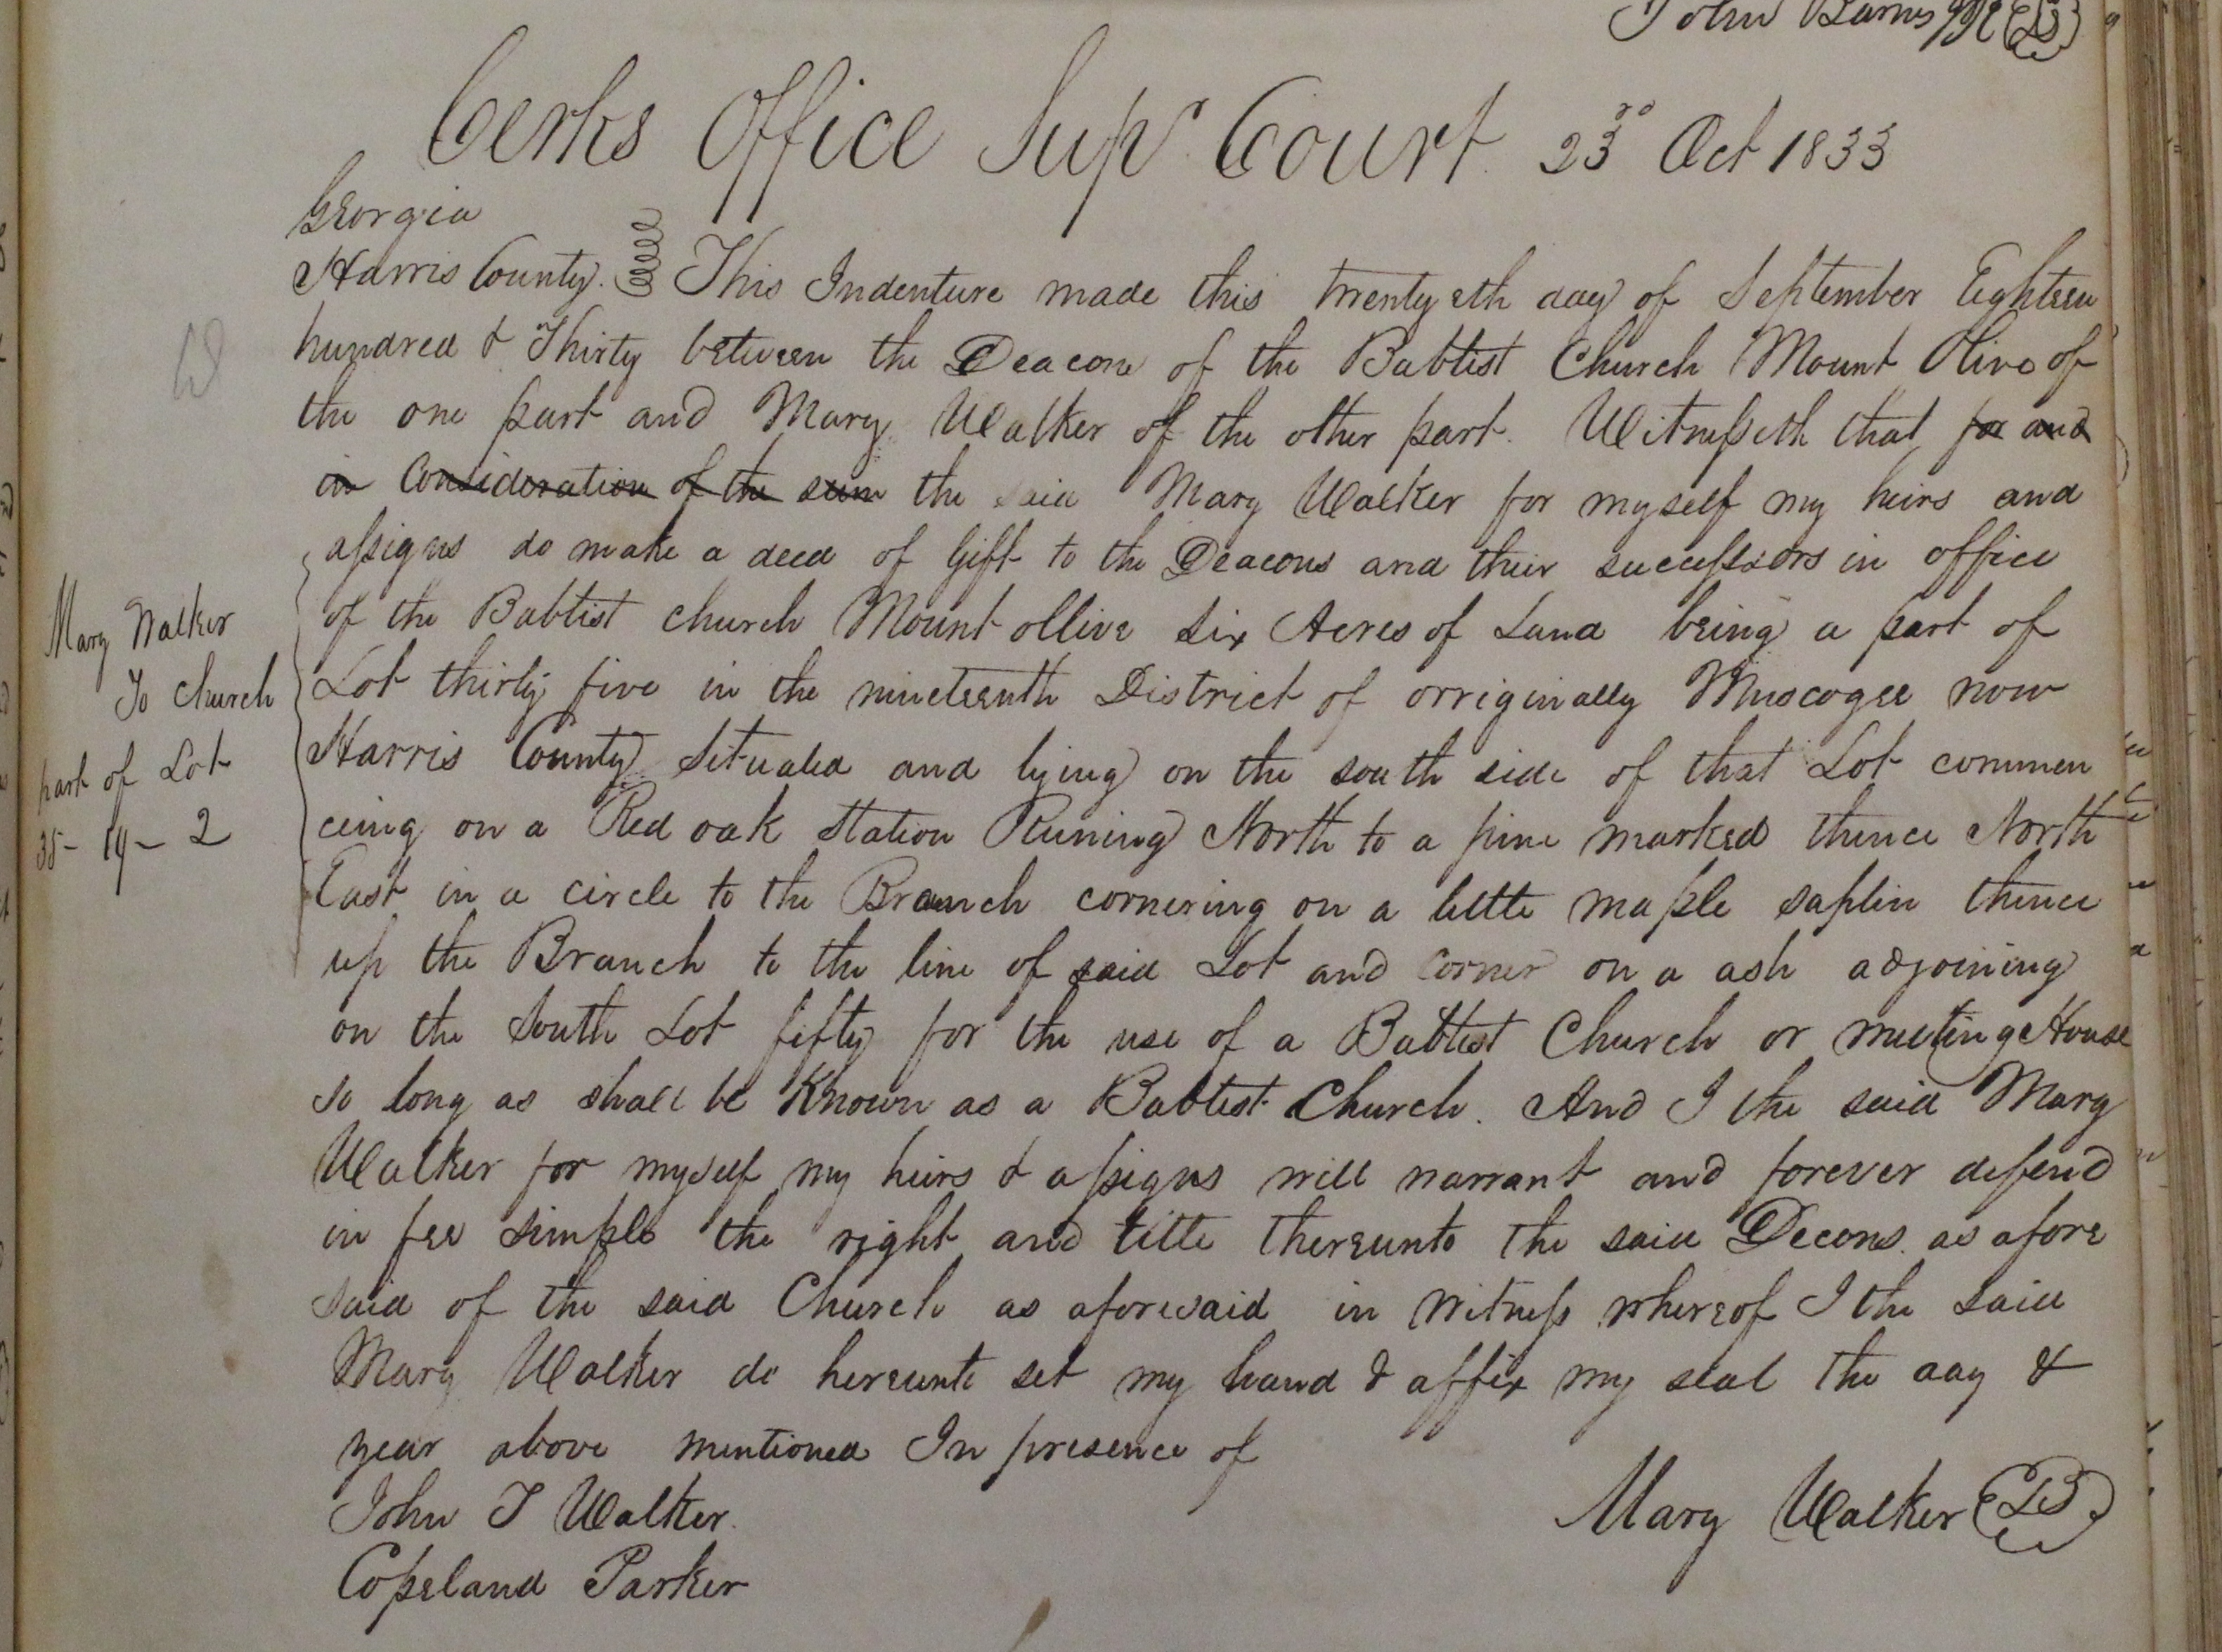 John Barnes
Cerks Office Supr Court 23rd Oct 1833
Georgia
Harris County. This Indenture made this twenty eth day of September Eighteen
hundred & Thirty between the Deacons of the Babtist Church Mount Olive of
the one part and Mary Walker of the other part. Witnesseth that for and
in Consideration of the sum the said Mary Walker for myself my heirs and
assigns do make a deed of Gift to the Deacons and their successors in office
of the Babtist church Mount ollive six Acres of Land being a part of
Lot thirty five in the nineteenth District of orriginally Muscogee now
Harris County Situated and lying on the south side of that Lot commen
cing on a Red oak Station Runing North to a pine marked thence North
East in a circle to the Branch cornering on a little maple saplin thence
up the Branch to the line of said Lot and corner on a ash adjoining
on the South Lot fifty for the use of a Babtist Church or meeting House
so long as shall be Known as a Babtist Church. And I the said Mary
Walker for myself my heirs & assigns will warrant and forever defend
in fee simple the right and title thereunto the said Decons as afore
said of the said Church as aforesaid in witness whereof I the said
Mary Walker do hereunto set my hand & affix my seal the day &
year above mentioned In presence of
John T Walker.
Copeland Parker
Mary Walker LS
Mary Walker
To Church
part of Lot
35- 19- 2